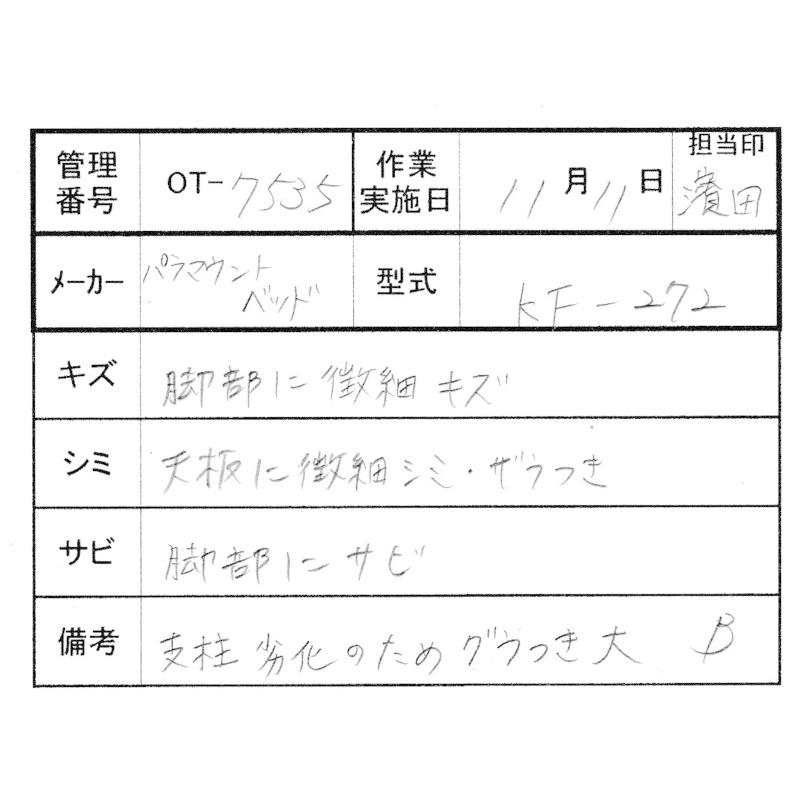 管理番号 OT-7535 作業実施日 11月11日 担当印 濱田
メーカー パラマウントベッド 型式 KF-272
キズ 脚部に微細キズ
シミ 天板に微細シミ・ザラつき
サビ 脚部にサビ
備考 支柱劣化のためグラつき大 B